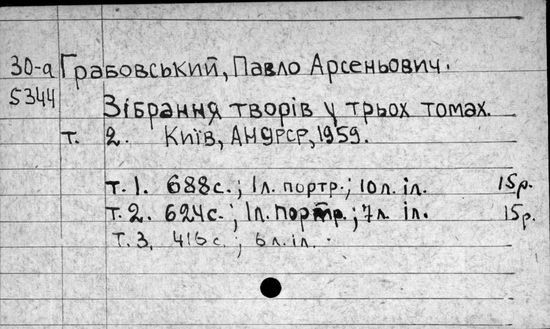 30-а Грабовський, Павло Арсеньович.
5344
Зібрання творів у трьох томах.
т. 2. Київ, АНУРСР, 1959.
т. 1. 688с.; 1л. портр.; 10л. іл. 15р.
т. 2. 624с.; 1л. портр.; 7л. іл. 15р.
т. 3. 416с.; 6л. іл.